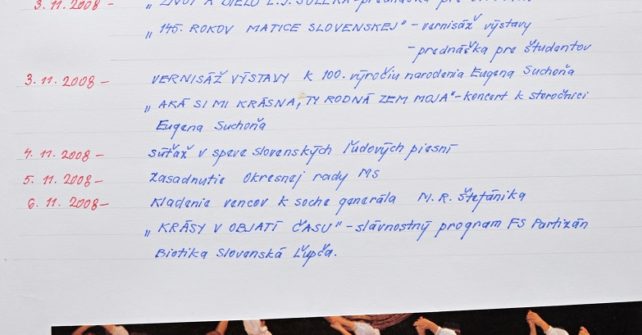 3. 11. 2008 – „ ŽIVOT A DIELO
„ 145. ROKOV MATICE SLOVENSKEJ" – vernisáž výstavy
– prednáška pre študentov
3. 11. 2008 – VERNISÁŽ VÝSTAVY k 100. výročiu narodenia Eugena Suchoňa
„ AKÁ SI MI KRÁSNA, TY RODNÁ ZEM MOJA" – koncert k storočnici
Eugena Suchoňa
4. 11. 2008 – súťaž v speve slovenských ľudových piesní
5. 11. 2008 – Zasadnutie Okresnej rady MS
6. 11. 2008 – Kladenie vencov k soche generála M. R. Štefánika
„ KRÁSY V OBJATÍ ČASU" – slávnostný program FS Partizán
Biotika Slovenská Ľupča.